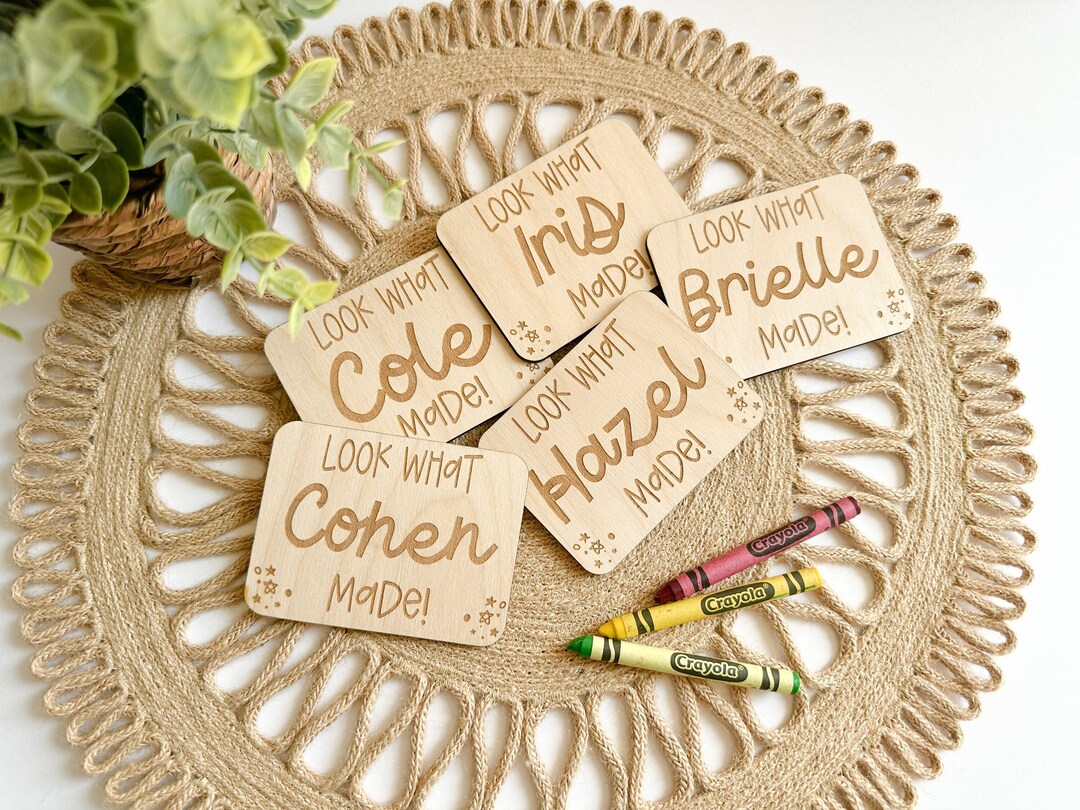 LOOK WHaT
Iris
MaDe!
LOOK WHaT
Brielle
MaDe!
LOOK WHaT
Cole
MaDe!
LOOK WHaT
Hazel
MaDe!
LOOK WHaT
Cohen
MaDe!
Crayola
Crayola
Crayola